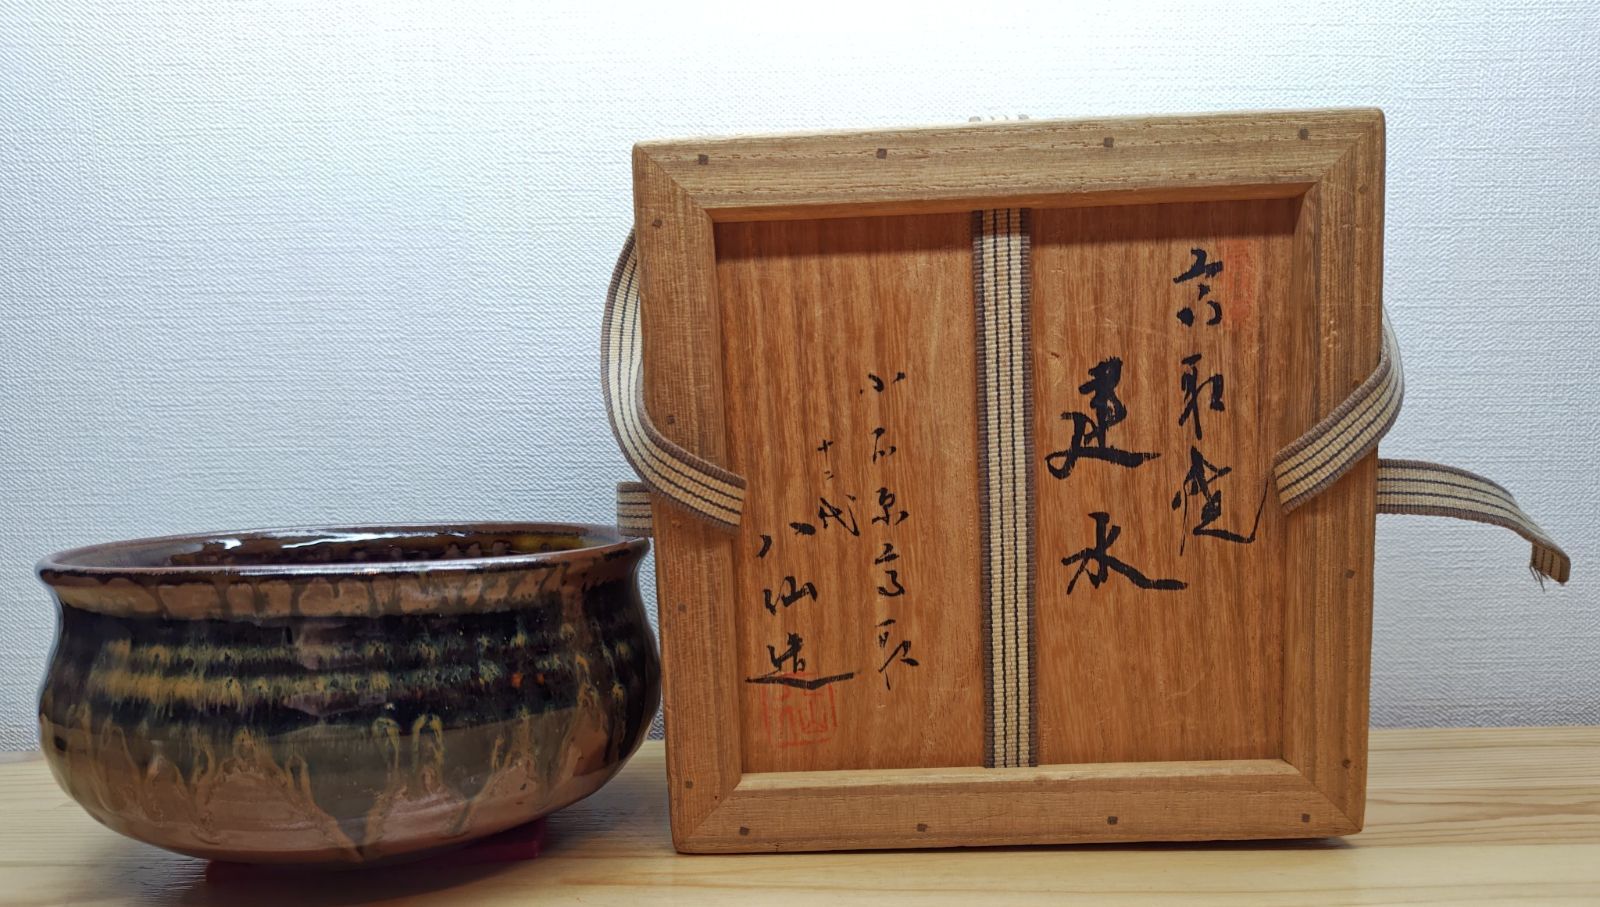 高取焼
建水
小石原高取
十三代
八仙造